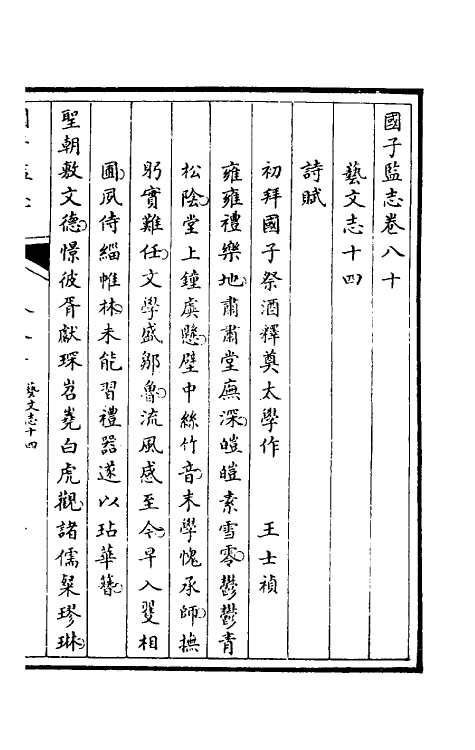 國子監志卷八十
藝文志十四
詩賦
初拜國子祭酒釋奠太學作 王士禎
雍雍禮樂地肅肅堂廡深皚皚素雪零鬱鬱青
松陰堂上鐘虡懸壁中絲竹音末學愧承師撫
躬實難任文學盛鄒魯流風感至今早入矍相
圃夙侍緇帷林未能習禮器遂以玷華簪
聖朝敷文德憬彼胥獻琛岧嶤白虎觀諸儒粲璆琳
藝文志十四